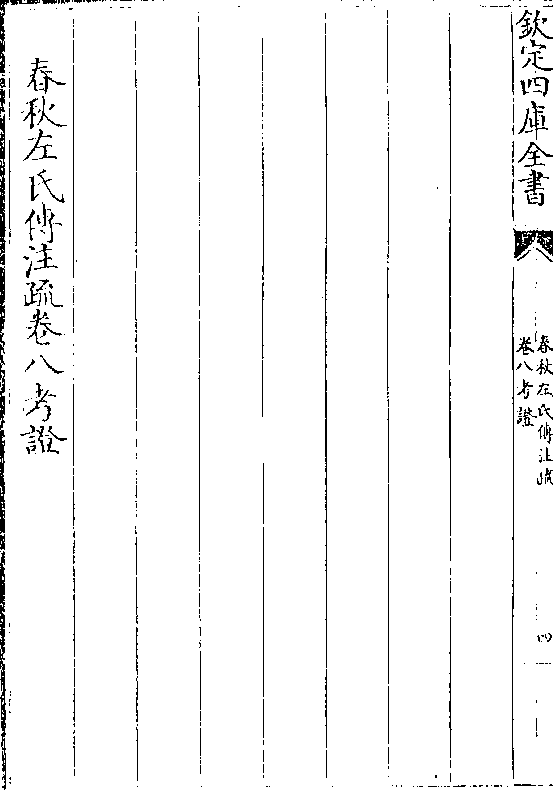 欽定四庫全書
春秋左氏傳注疏
卷八考證
四
春秋左氏傳注疏卷八考證